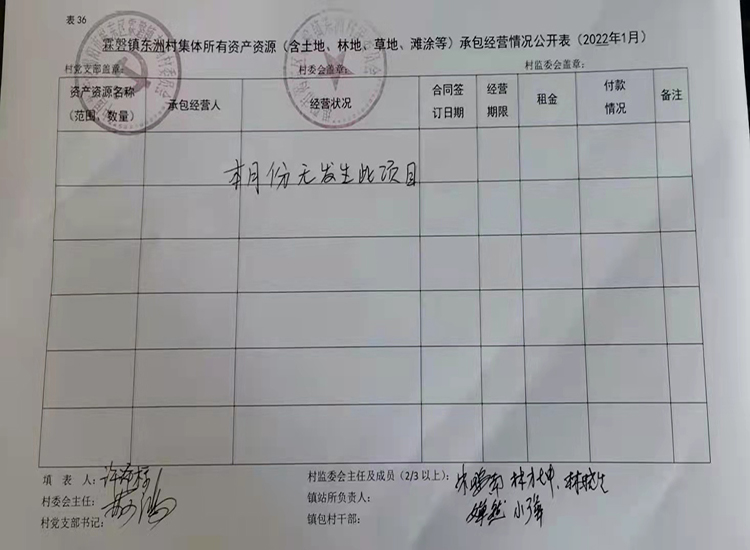 表36
霖磐镇东洲村集体所有资产资源（含土地、林地、草地、滩涂等）承包经营情况公开表（2022年1月）
村党支部盖章： 村委会盖章： 村监委会盖章：
资产资源名称（范围，数量） 承包经营人 经营状况 合同签订日期 经营期限 租金 付款情况 备注
本月份无发生此项目
填 表 人： 村监委会主任及成员（2/3以上）：
村委会主任： 镇站所负责人：
村党支部书记： 镇包村干部：